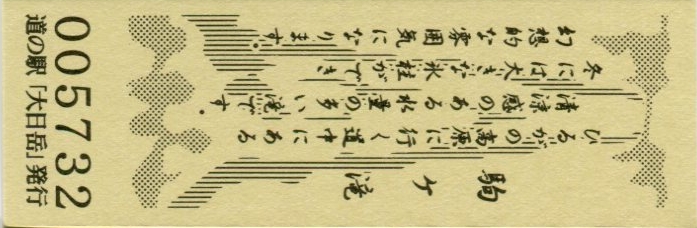 駒ケ滝
ひるがの高原に行く途中にある
清涼感のある水量の多い滝です。
冬には大きな氷柱ができ
幻想的な雰囲気になります。
005732
道の駅「大日岳」発行